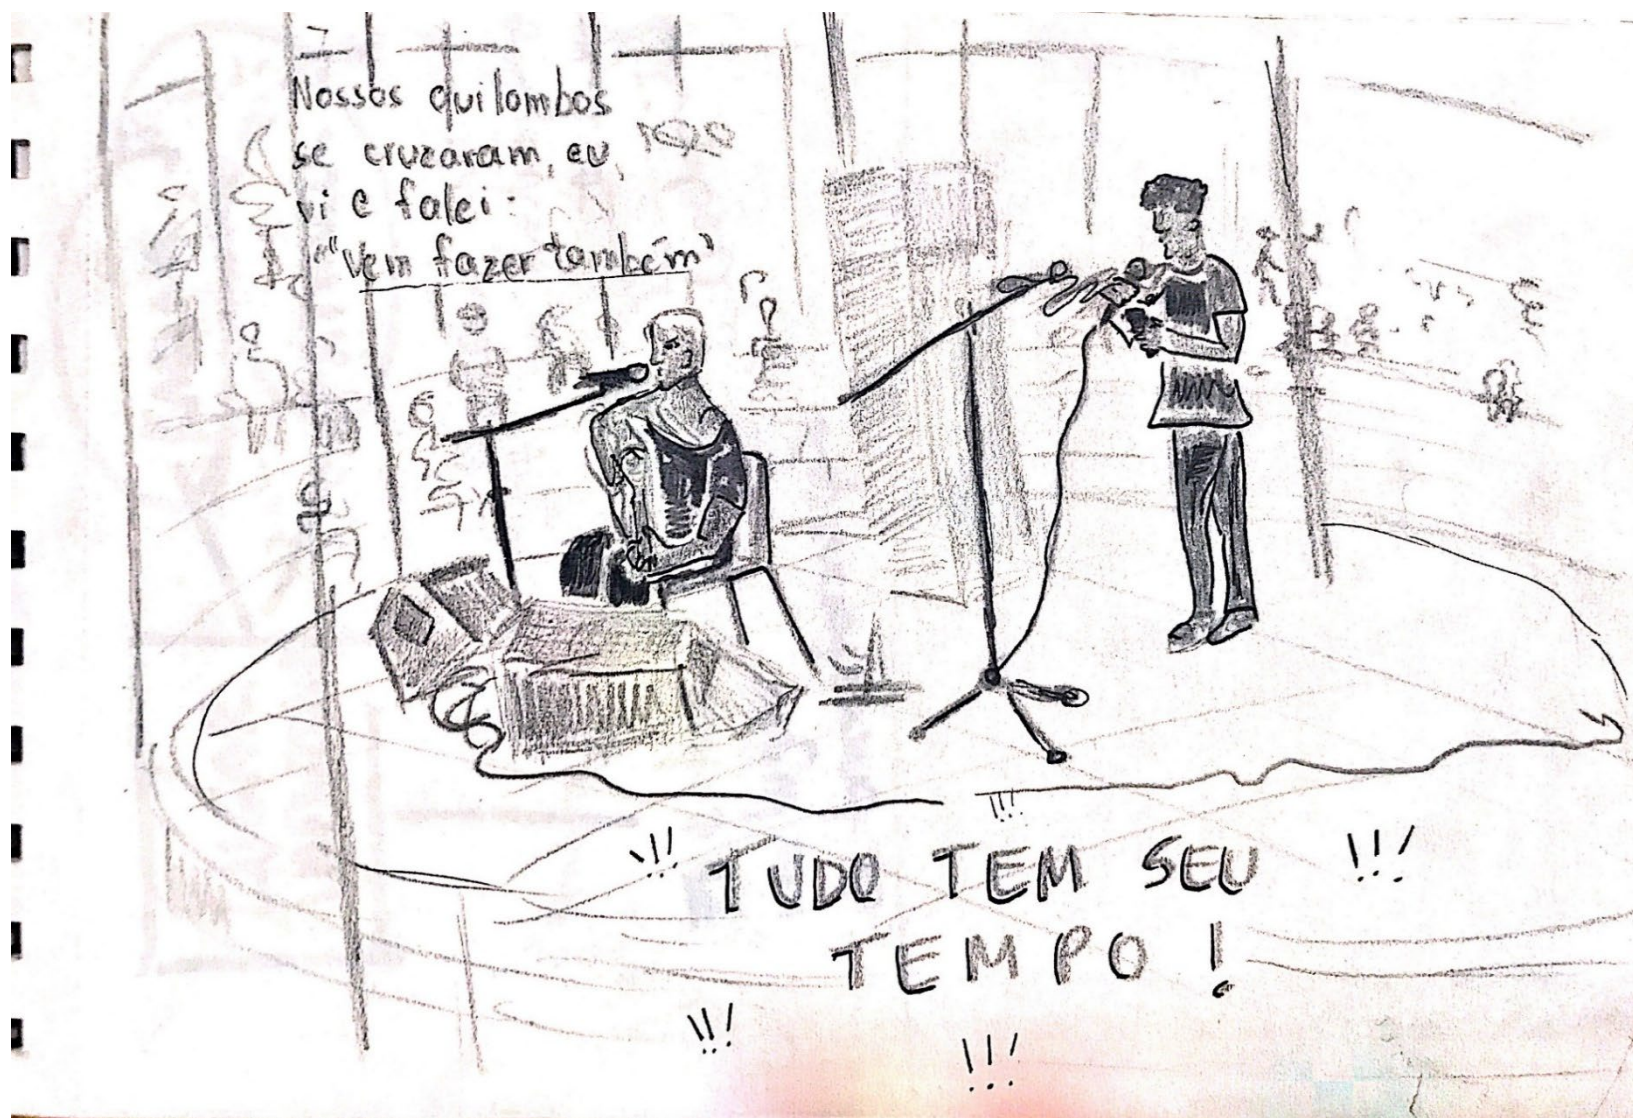 Nossos quilombos
se cruzaram, eu
vi e falei:
"Vem fazer também"
!!!
!!! TUDO TEM SEU !!!
TEMPO !
!!!
!!!